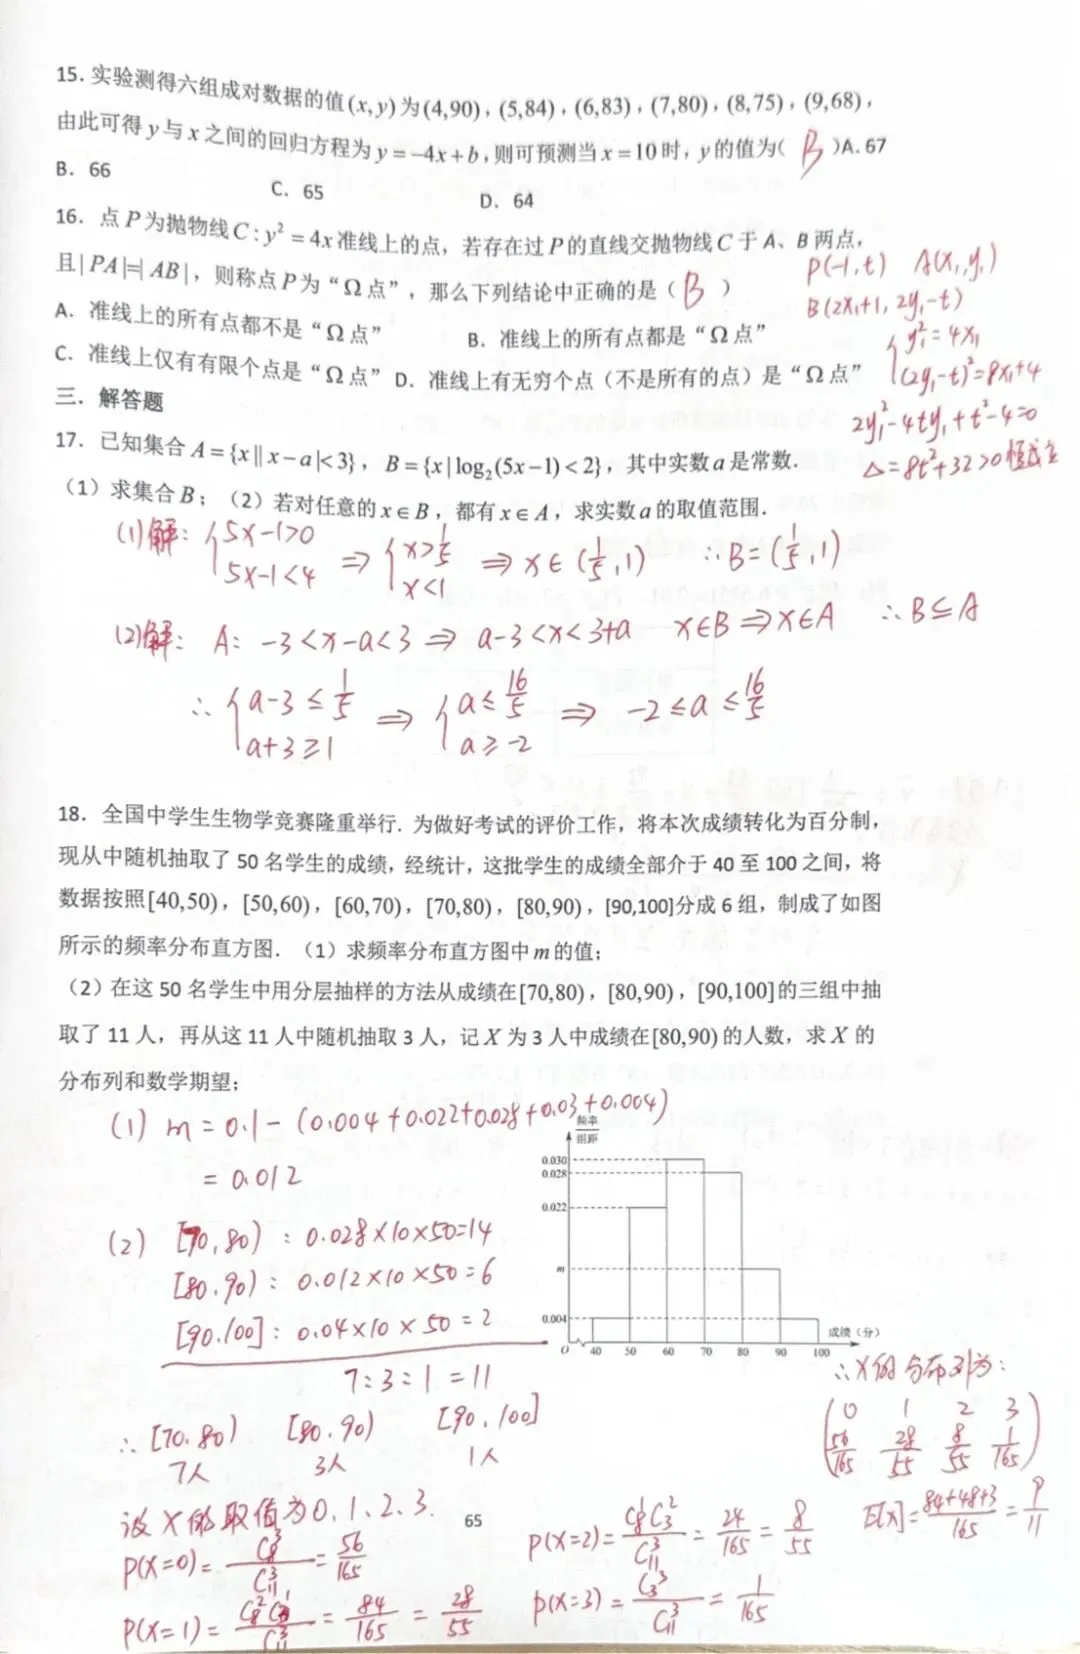 15. 实验测得六组成对数据的值(x,y)为(4,90)，(5,84)，(6,83)，(7,80)，(8,75)，(9,68)，
由此可得y与x之间的回归方程为y=-4x+b,则可预测当x=10时，y的值为( B )A. 67
B. 66
C. 65
D. 64
16. 点P为抛物线C:y²=4x准线上的点，若存在过P的直线交抛物线C于A、B两点，
且|PA|=|AB|，则称点P为“Ω点”，那么下列结论中正确的是（ B ）
A. 准线上的所有点都不是“Ω点”
B. 准线上的所有点都是“Ω点”
C. 准线上仅有有限个点是“Ω点” D. 准线上有无穷个点（不是所有的点）是“Ω点”
P(-1,t) A(x₁,y₁)
B(2x₁+1, 2y₁-t)
{y₁²=4x₁
(2y₁-t)²=8x₁+4
2y₁²-4ty₁+t²-4=0
△=8t²+32>0恒成立
三. 解答题
17. 已知集合A={x||x-a|<3}，B={x|log₂(5x-1)<2}，其中实数a是常数.
（1）求集合B；（2）若对任意的x∈B，都有x∈A，求实数a的取值范围.
(1)解: {5x-1>0 5x-1<4 ⇒ {x>1/5 x<1 ⇒ x∈(1/5,1) ∴B=(1/5,1)
(2)解: A: -3<x-a<3 ⇒ a-3<x<3+a x∈B⇒x∈A ∴B⊆A
∴{a-3≤1/5 a+3≥1 ⇒ {a≤16/5 a≥-2 ⇒ -2≤a≤16/5
18. 全国中学生生物学竞赛隆重举行. 为做好考试的评价工作，将本次成绩转化为百分制，
现从中随机抽取了50名学生的成绩，经统计，这批学生的成绩全部介于40至100之间，将
数据按照[40,50)，[50,60)，[60,70)，[70,80)，[80,90)，[90,100]分成6组，制成了如图
所示的频率分布直方图.（1）求频率分布直方图中m的值;
（2）在这50名学生中用分层抽样的方法从成绩在[70,80)，[80,90)，[90,100]的三组中抽
取了11人，再从这11人中随机抽取3人，记X为3人中成绩在[80,90)的人数，求X的
分布列和数学期望;
(1) m=0.1-(0.004+0.022+0.028+0.03+0.004)
=0.012
(2) [70,80): 0.028×10×50=14
[80,90): 0.012×10×50=6
[90,100]: 0.04×10×50=2
7:3:1=11
∴[70,80) [80,90) [90,100]
7人 3人 1人
设X能取值为0、1、2、3.
P(X=0)=C₈³/C₁₁³=56/165
P(X=1)=C₈²C₃¹/C₁₁³=84/165=28/55
频率
组距
0.030
0.028
0.022
m
0.004
O 40 50 60 70 80 90 100
成绩（分）
∴X的分布列为:
(0 1 2 3
56/165 28/55 8/55 1/165)
65
P(X=2)=C₈¹C₃²/C₁₁³=24/165=8/55
E[X]=84+48+3/165=9/11
P(X=3)=C₃³/C₁₁³=1/165